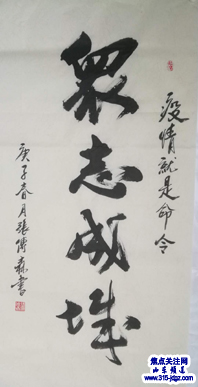 疫情就是命令
眾志成城
庚子春月張傳森書
焦点关注网
山东频道
www.315-jdgz.com